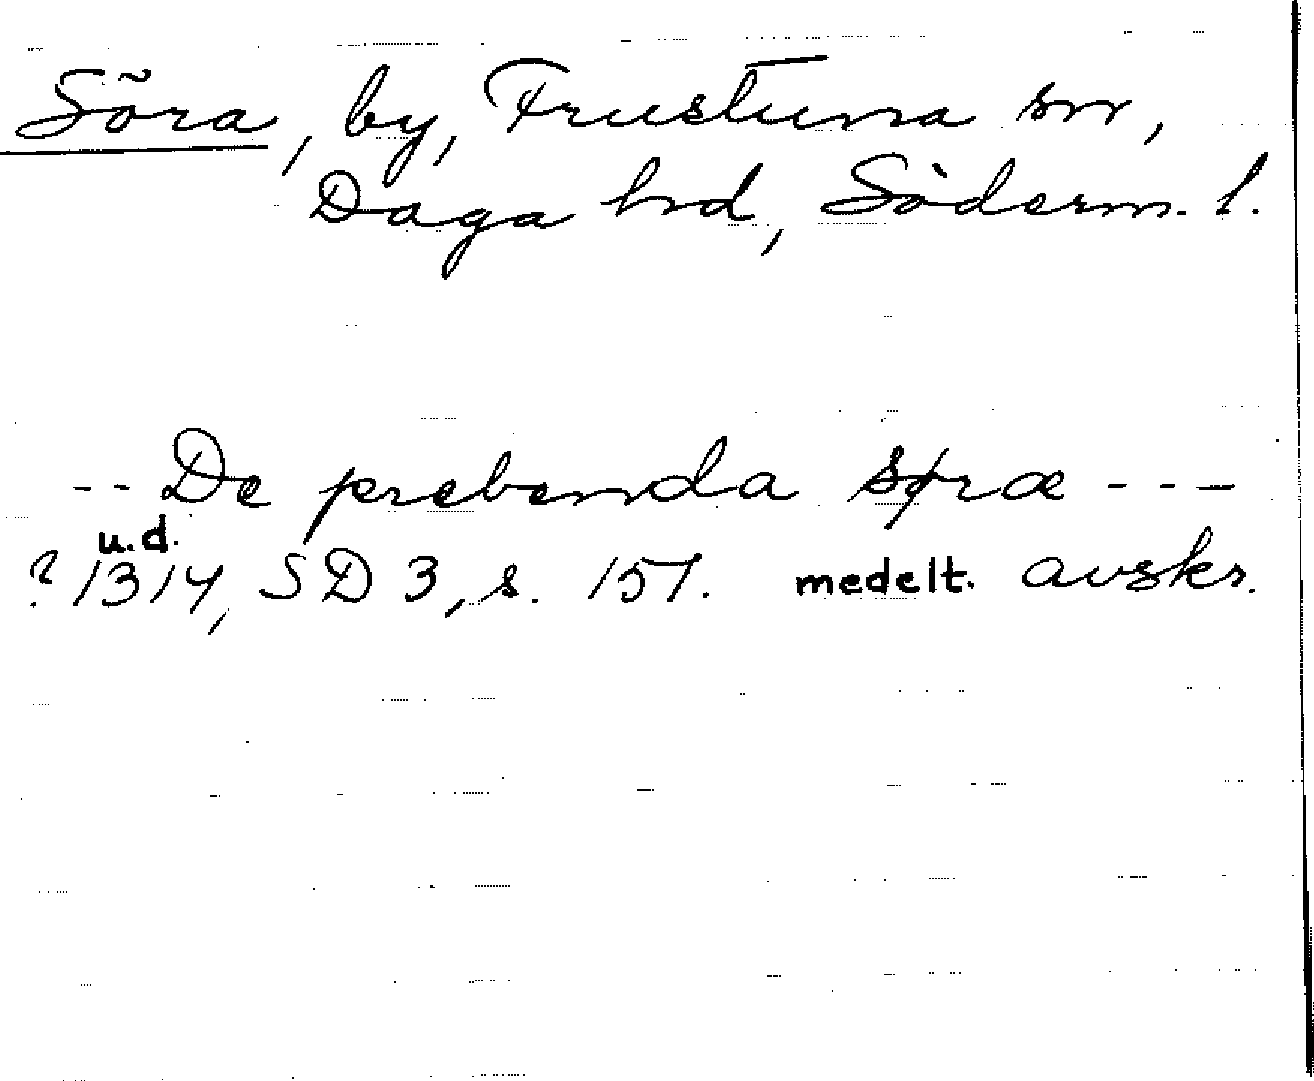 Söra, by, Frustuna sn,
Daga hd, Söderm. l.
-- De prebenda Søræ ---
u.d.
? 1314, SD 3, s. 157. medelt. avskr.